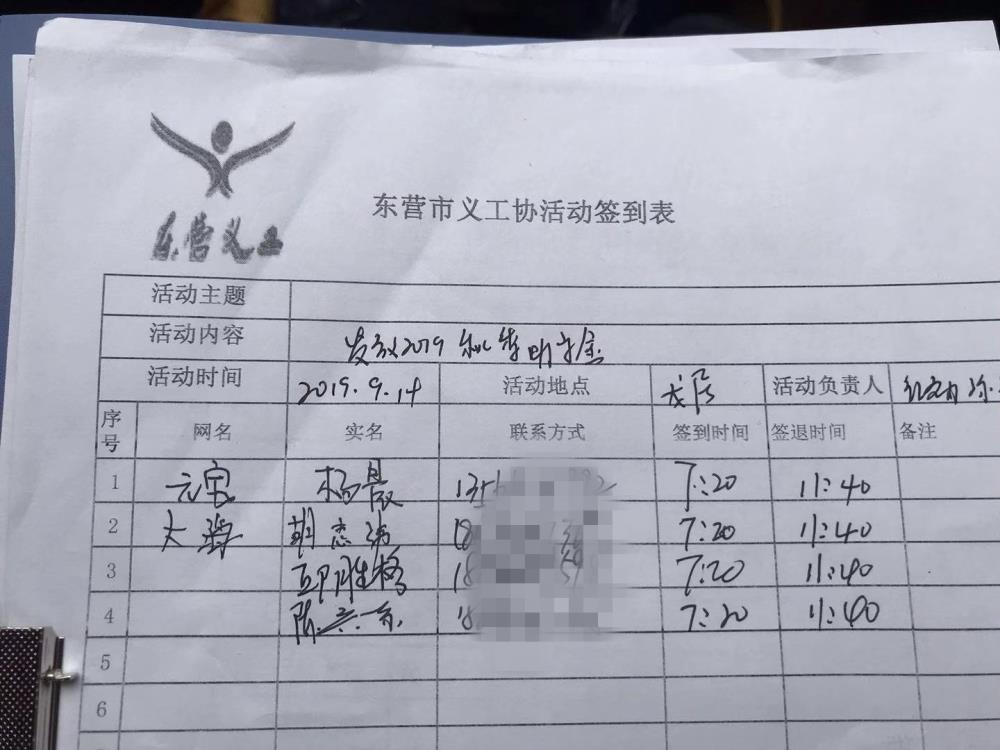 东营义工
东营市义工协活动签到表
活动主题
活动内容 发放2019秋季助学金
活动时间 2019.9.14 活动地点 龙居 活动负责人
序号 网名 实名 联系方式 签到时间 签退时间 备注
1 元宝 杨晨 7:20 11:40
2 大海 胡志强 7:20 11:40
3 7:20 11:40
4 7:20 11:40
5
6